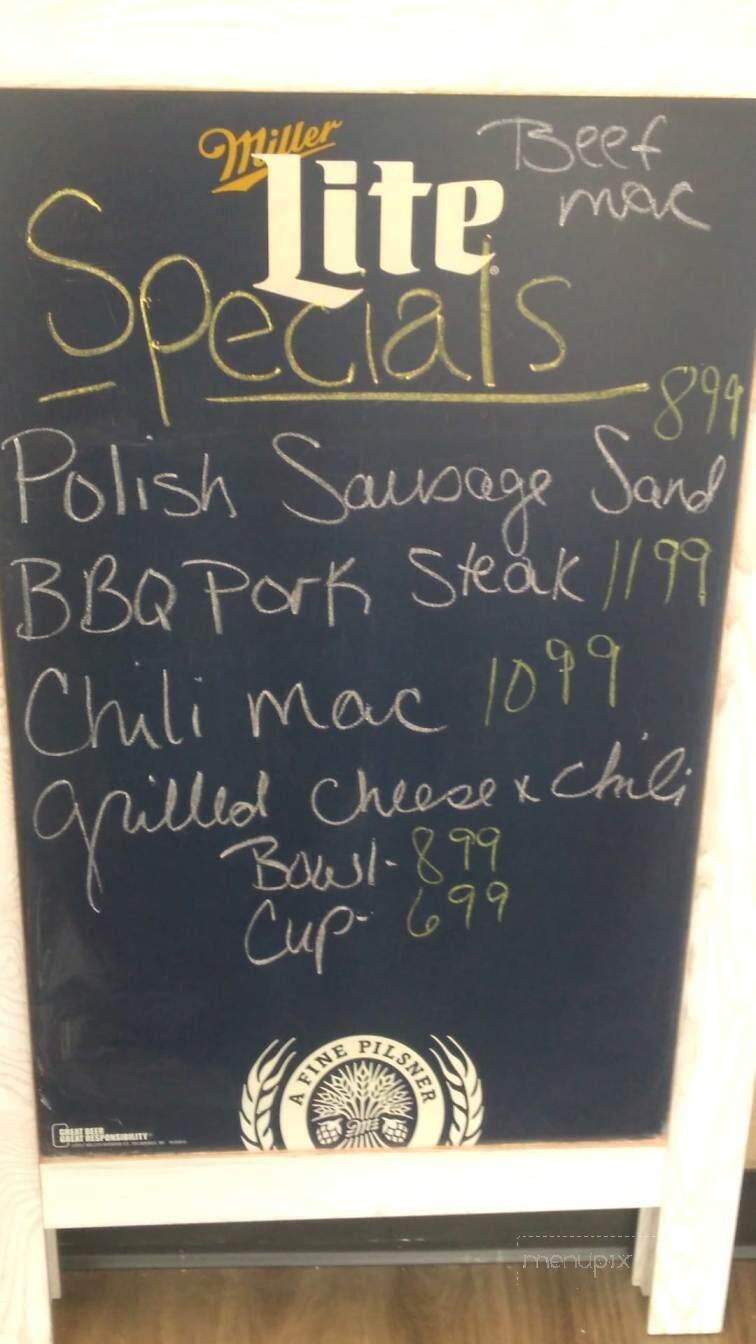 Miller
Lite
Beef
mac
Specials
899
Polish Sausage Sand
BBQ Pork Steak 1199
Chili mac 1099
grilled cheese x chili
Bowl- 899
Cup- 699
A FINE PILSNER
GREAT BEER
GREAT RESPONSIBILITY
menupix